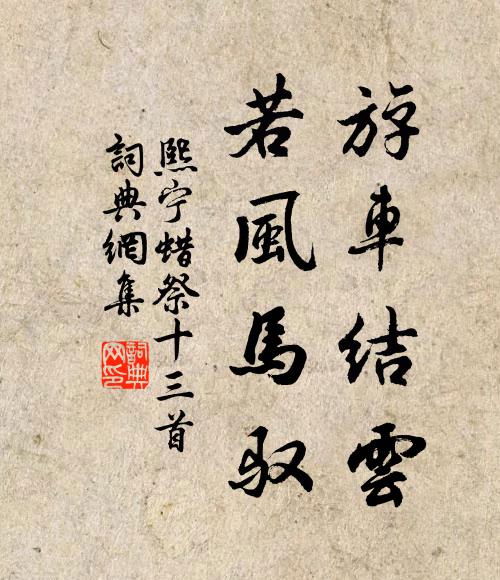 斿車結雲
若風馬馭
熙宁蜡祭十三首
詞典網集
詞典网印